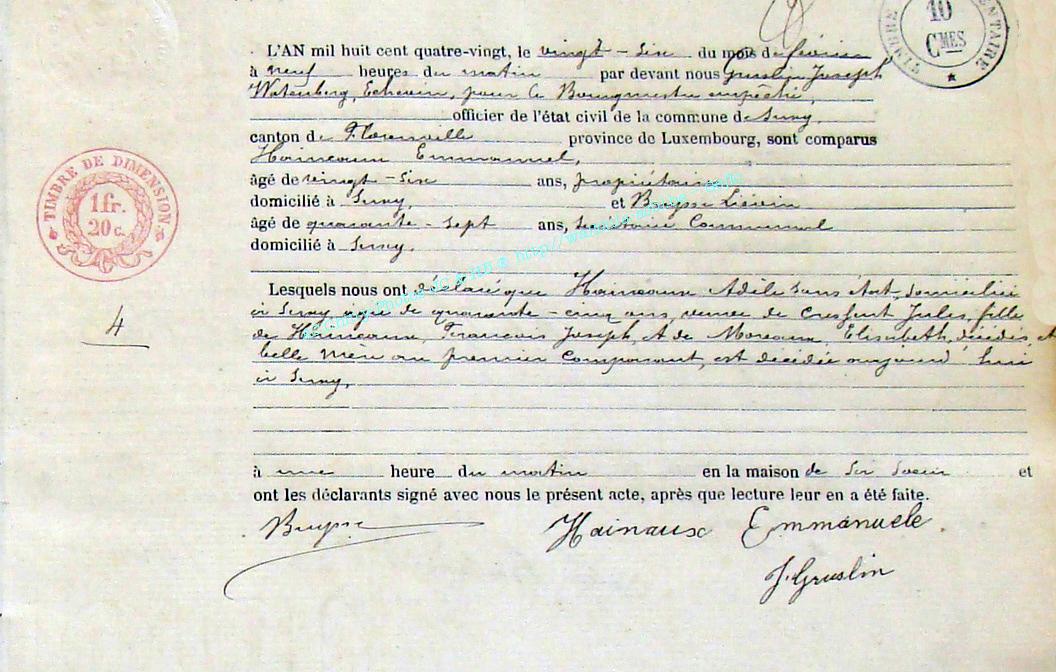 10
CMES
TIMBRE
L'AN mil huit cent quatre-vingt, le vingt - six du mois de février
à neuf heures du matin par devant nous Gruslin Joseph
Echevin, pour le Bourgmestre empêché,
officier de l'état civil de la commune de Suxy,
canton de Florenville province de Luxembourg, sont comparus
Hainaux Emmanuel,
âgé de vingt - six ans, propriétaire
domicilié à Suxy, et Buysse Liévin
âgé de quarante - sept ans, Secrétaire Communal
domicilié à Suxy.
Lesquels nous ont déclaré que Hainaux Adèle sans état, domiciliée
à Suxy âgée de quarante - cinq ans, veuve de Jules, fille
de Hainaux, François Joseph, et de Moreaux, Elisabeth, décédés, et
belle mère au premier Comparant, est décédée aujourd'hui
à Suxy,
à une heure du matin en la maison de sa soeur et
ont les déclarants signé avec nous le présent acte, après que lecture leur en a été faite.
Buysse Hainaux Emmanuele
J. Gruslin
TIMBRE DE DIMENSION
1 fr.
20 c.
4